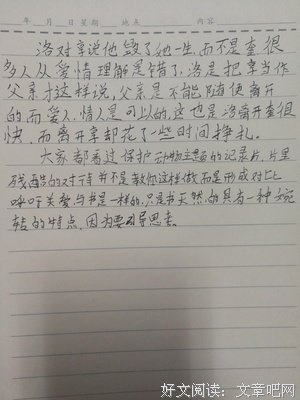 年 月 日 星期 地点 内容
洛对亨说他毁了她一生,而不是奎很
多人从爱情理解是错了,洛是把享当作
父亲才这样说,父亲是不能随便离开
的而爱人,情人是可以的,这也是洛离开奎很
快,而离开享却花了一些时间挣扎。
大家都看过保护动物主题的记录片,片里
残酷的对待并不是教你这样做而是形成对比
呼吁关爱与书是一样的,只是书天然的具有一种婉
转的特点,因为要引导思考。
好文阅读:文章吧网